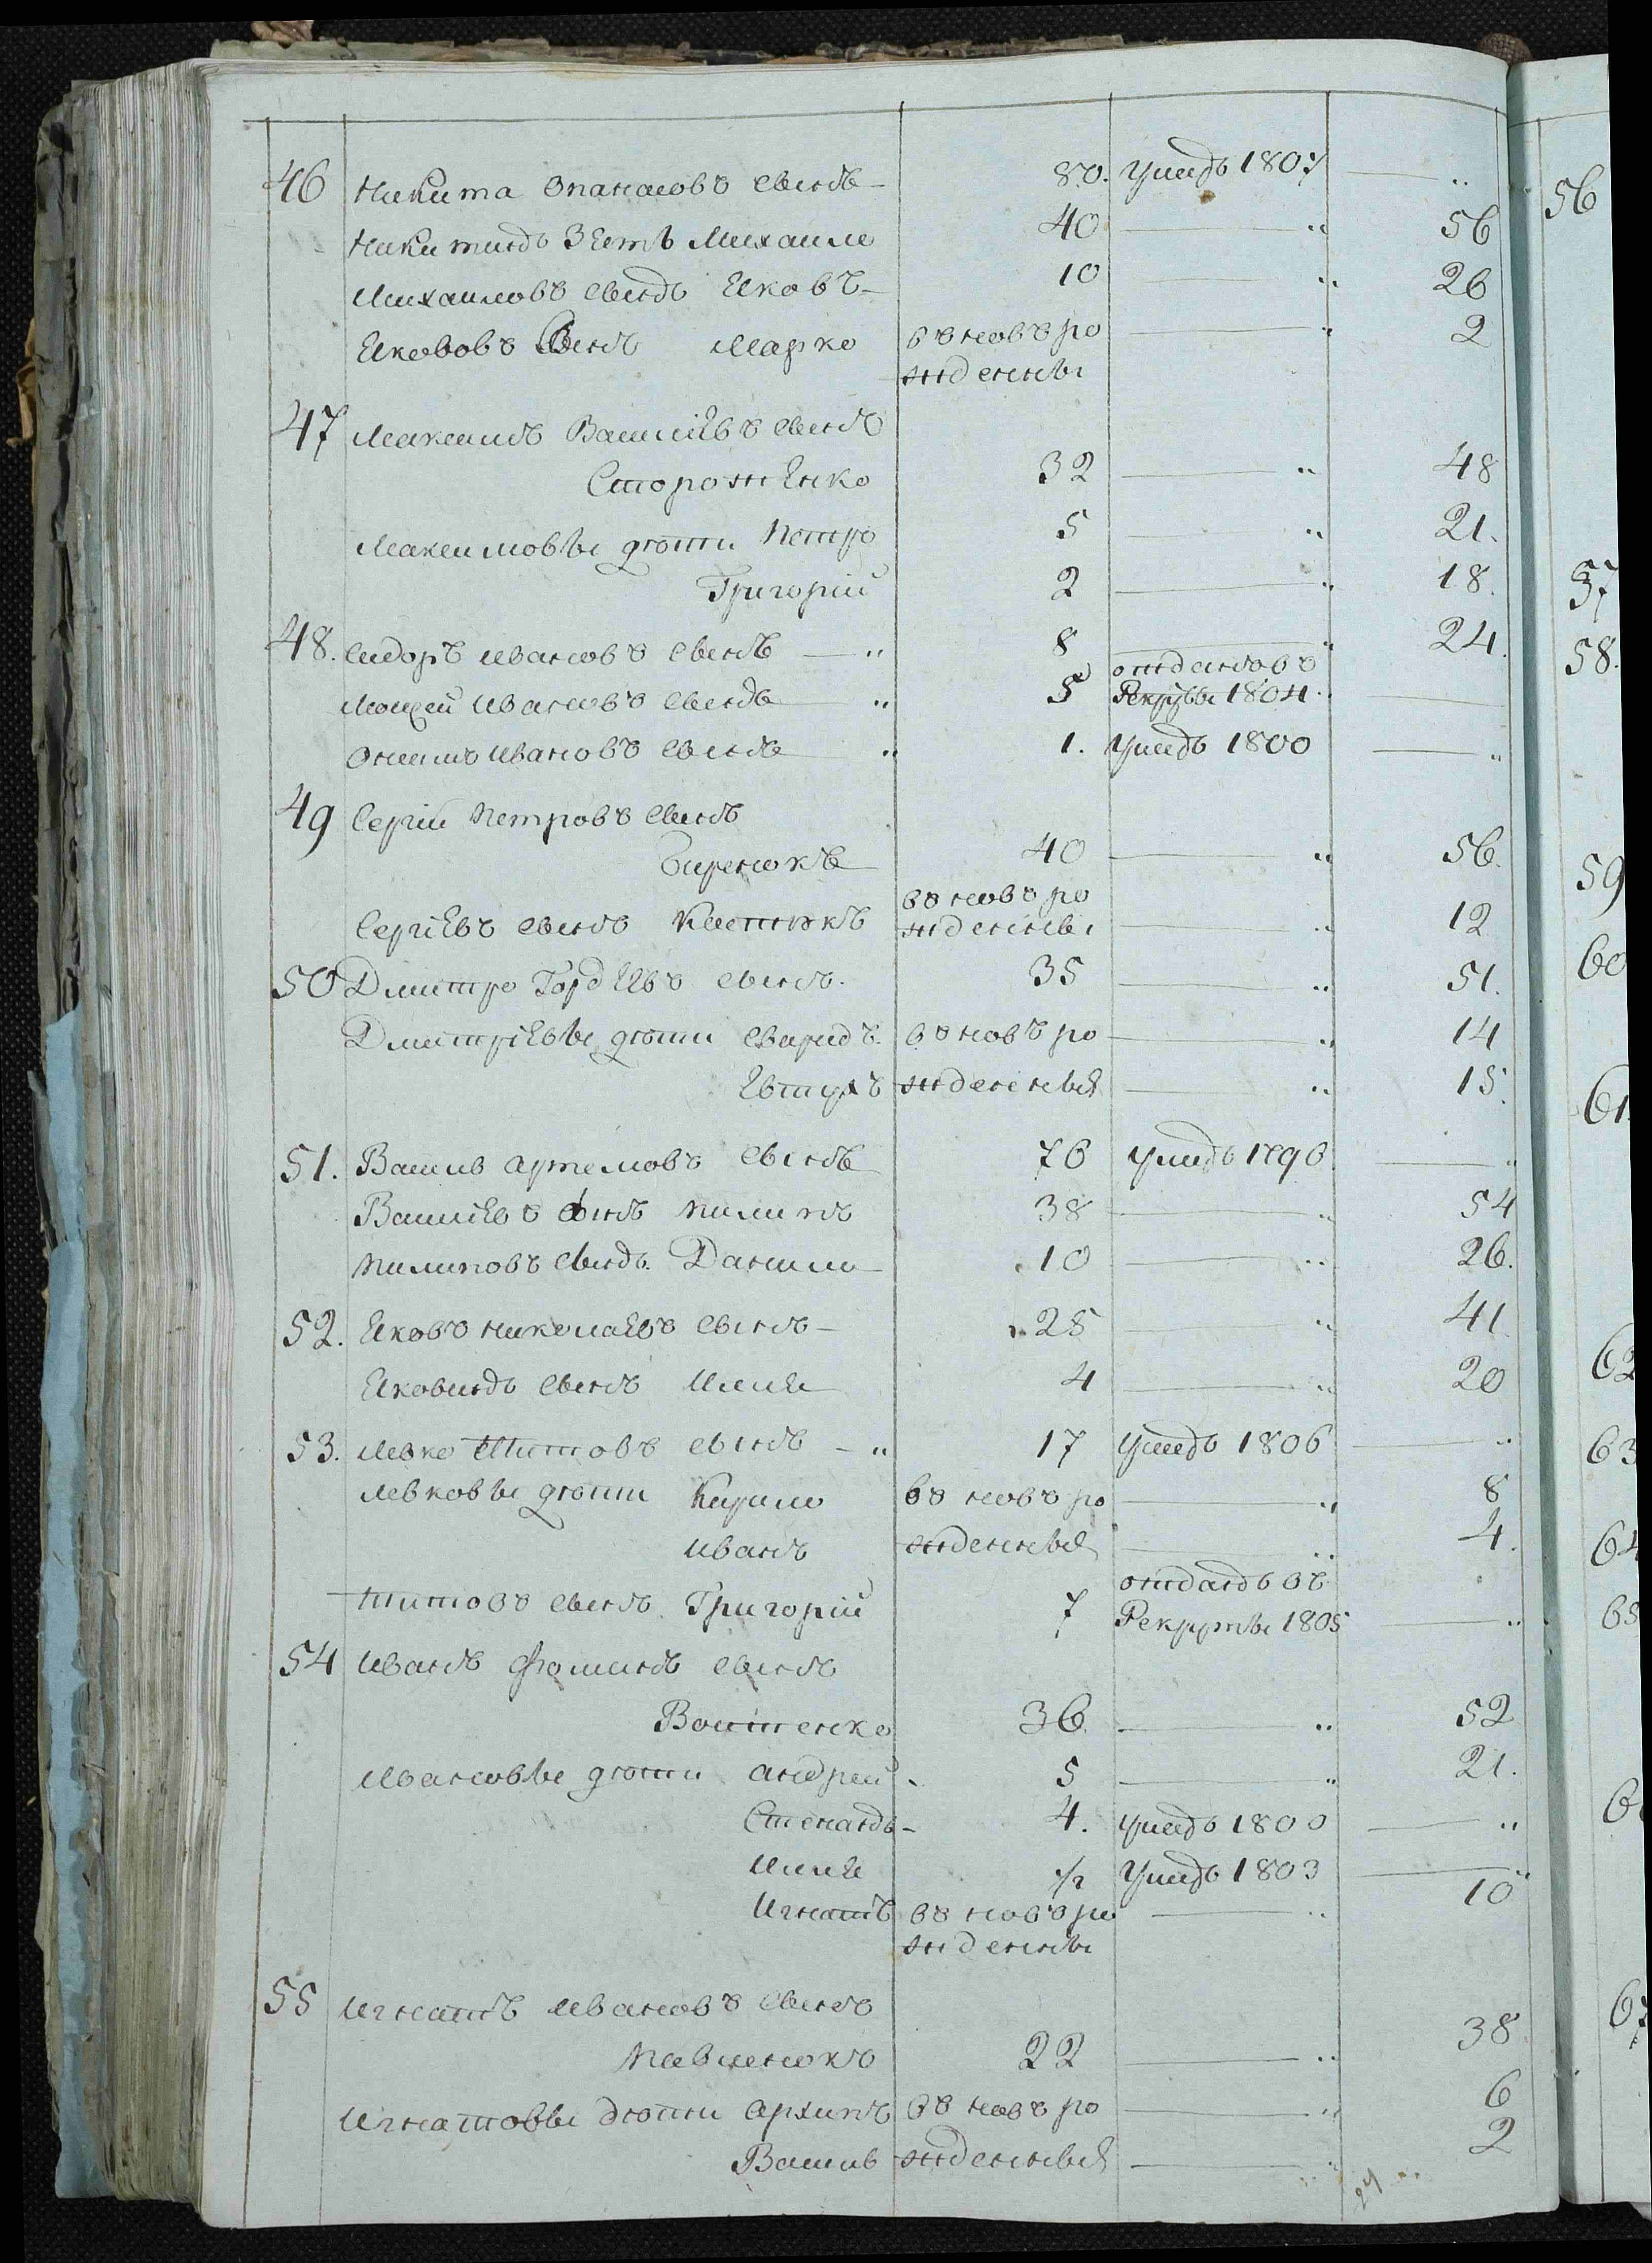 46 Никита Опанасовъ сынъ 80. умедъ 1807
Никитинъ Зеть Михаило 40 56
Михаиловъ сынъ Яковъ 10 26
Якововъ Сынъ Марко въ новъ ро 2
жденны
47 Максимъ Василіевъ сынъ
Стороженко 32 48
Максимовы дѣти Петро 5 21.
Григорій 2 18.
48. Сидоръ Ивановъ сынъ 8 24.
отданъ въ
Мойсей Ивановъ сынъ 5 Рекруты 1804.
Ивановъ сынъ 1. умедъ 1800
49 Сергій Петровъ сынъ
40 56.
въ новъ ро
Сергіевъ сынъ Костюкъ жденны 12
50 Дмитро Гордѣевъ сынъ. 35 51.
Дмитріевы дѣти Свиридъ въ новъ ро 14
Евтухъ жденныя 15.
51. Василь Артемовъ сынъ 76 умедъ 1796
Василіевъ сынъ Пилипъ 38 54
Пилиповъ сынъ Данило 10 26.
52. Яковъ Николаевъ сынъ 25 41.
Яковинъ сынъ Илия 4 20
53. Левко Титовъ сынъ 17 умедъ 1806
Левковы дѣти Кирило въ новъ ро 8
Иванъ жденныя 4.
отданъ въ
Титовъ сынъ Григорій 7 Рекруты 1805
54 Иванъ Фоминъ сынъ
Войтенко 36. 52
Ивановы дѣти Андрей 5 21.
Степанъ 4. умедъ 1800
Илия 1/2 Умедъ 1803
Игнатъ въ новъ ро 10
жденны
55 Игнатъ Ивановъ сынъ
22 38
Игнатовы дѣти Архипъ въ новъ ро 6
Василь жденныя 2
56
57
58.
59
60
61.
62
63
64
65
67